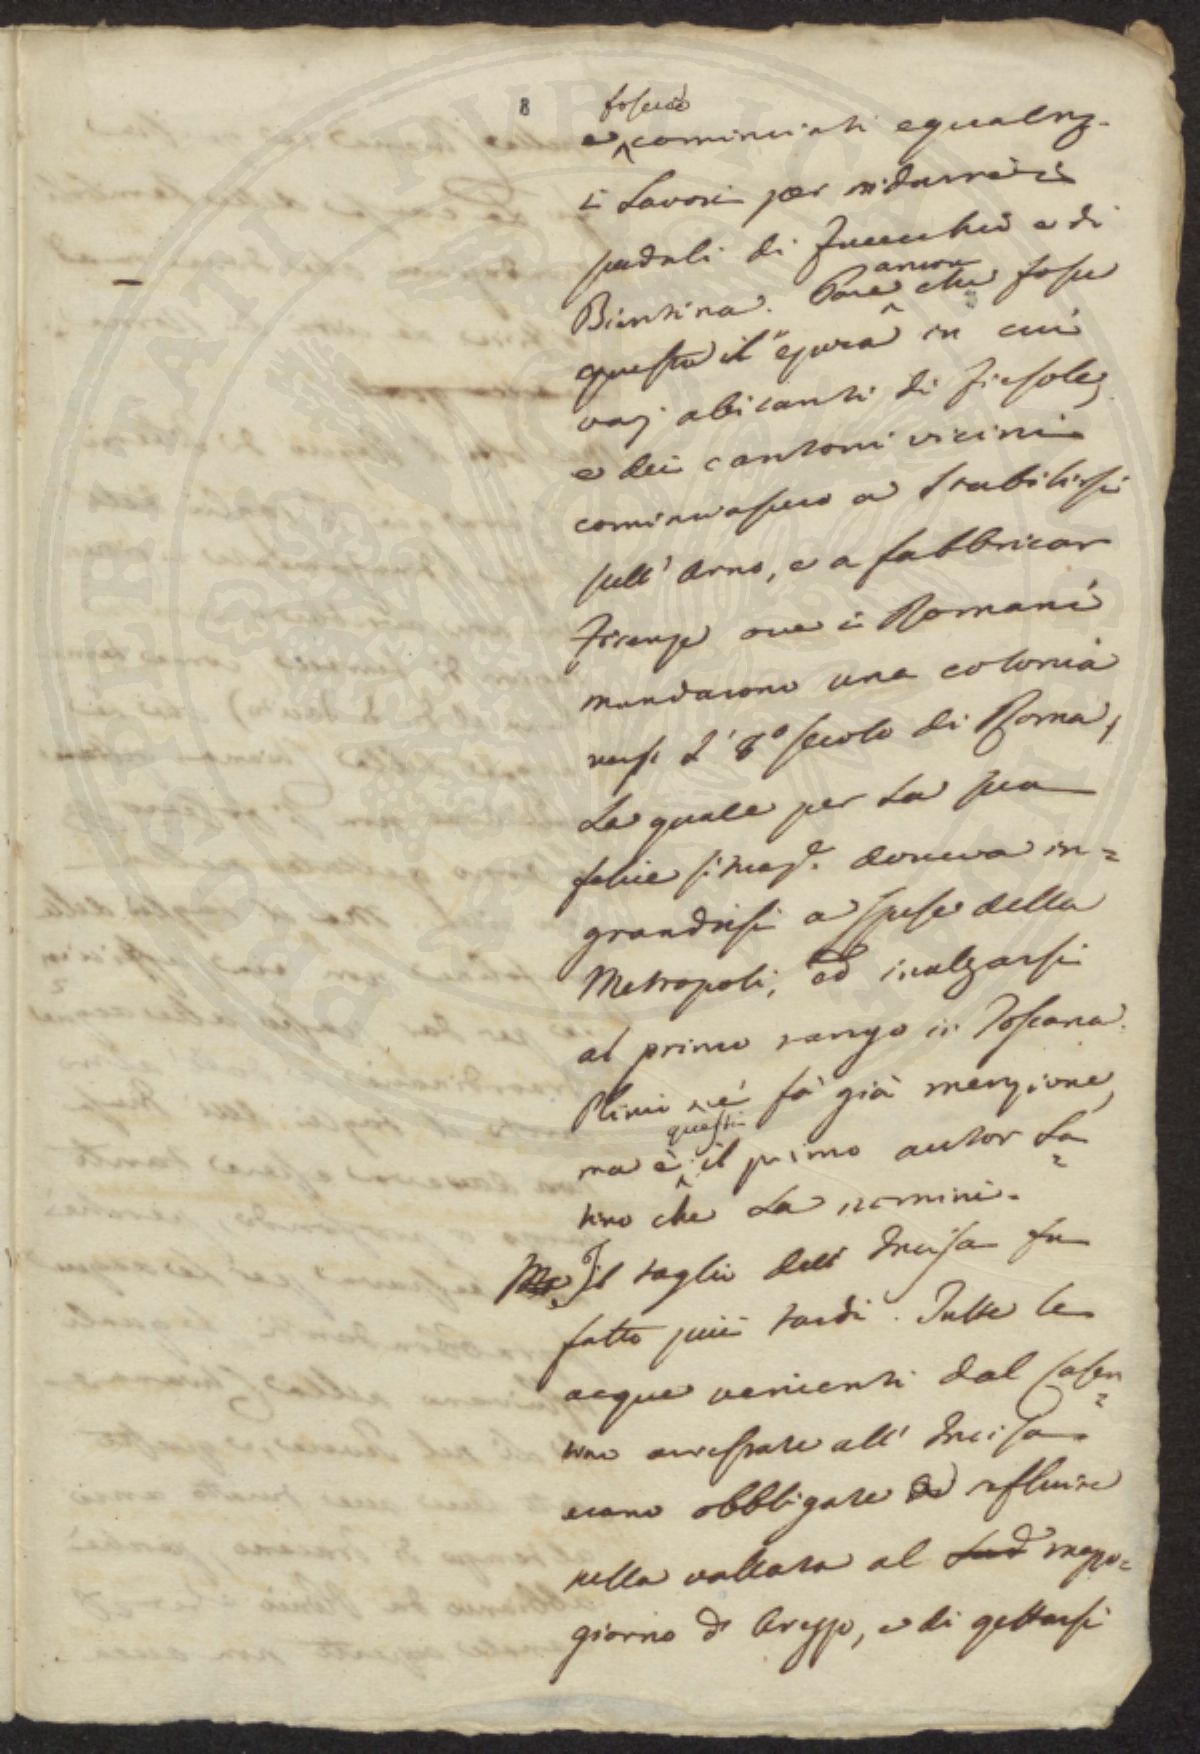 8
fosse
e cominciati egualm.
i Lavori per ridurre i
paduli di Fucecchio e di
Bientina. Pare ancora che fosse
questa il epoca in cui
varj abitanti di Fiesole,
e dei cantoni vicini
cominciassero a stabilirsi
sull' Arno, e a fabbricar
Firenze ove i Romani
mandarono una colonia
verso l' 8º secolo di Roma,
La quale per La sua
felice situaz.e doveva in=
grandirsi a spese della
Metropoli, ed inalzarsi
al primo rango in Toscana.
Plinio ne fà già menzione,
ma è questi il primo autor La=
tino che La nomini.
Il taglio dell' Incisa fu
fatto più tardi. Tutte le
acque venienti dal Casen=
tino arrestate all' Incisa
erano obbligate refluire
nella vallata al Sud mezzo=
giorno d' Arezzo, e di gettarsi